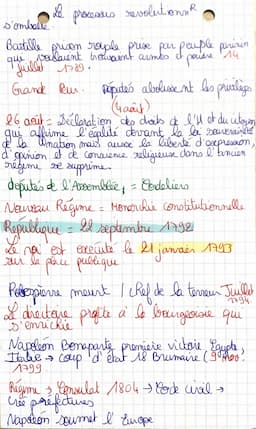 Le processus revolutionnR
s'emballe
Bastille prison royale prise par peuple parisien
qui voulaient trouvaient armes et poudre 14
juillet 1789.
Grande Peur. députés abolissent les privilèges
(4 août)
26 août = Déclaration des droits de l'H et du citoyen
qui affirme l'égalité devant la loi souveraineté
de la nation mais aussi la liberté d'expression,
d'opinion et de conscience religieuse dans l'Ancien
régime se supprime.
députés de l'Assemblée, = Cordeliers
Nouveau Régime = Monarchie constitutionnelle
République = 22 septembre 1792
Le roi est executé le 21 janvier 1793
sur la place publique
Robespierre meurt / chef de la terreur Juillet
1794
Le directoire profite à la bourgeoisie qui
s'enrichie
Napoléon Bonaparte première victoire Egypte,
Italie → coup d'état 18 Brumaire (9 Nov,
1799
Régime → Consulat 1804 → Code civil →
Crée préfectures
Napoléon soumet l'Europe